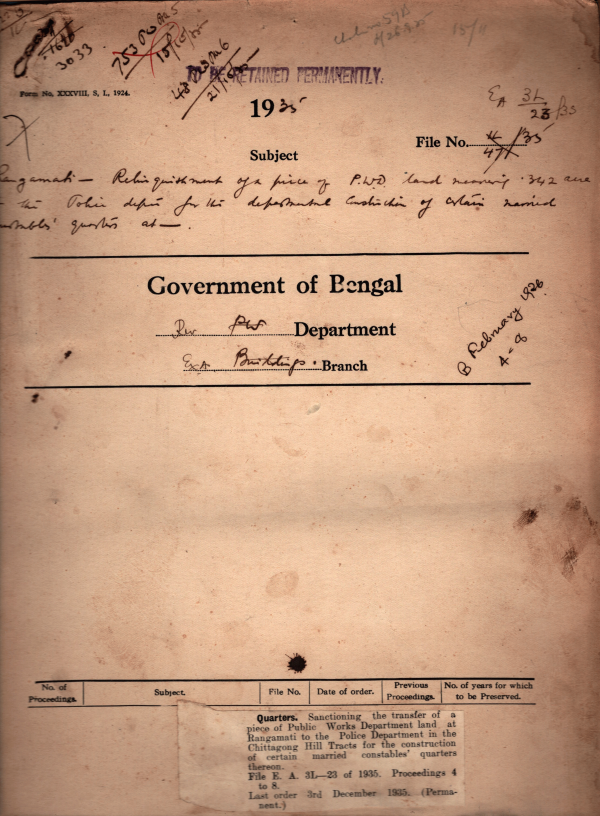 3033
753 PW
15/10/35
21/10/35
TO BE RETAINED PERMANENTLY.
Form No. XXXVIII, S, L, 1924.
1935
EA 3L/23 /35
File No. 4/47 /35
Subject
Rangamati — Relinquishment of a piece of P.W.D. land measuring .342 acre
the Police deptt for the departmental Construction of certain married
constables' quarters at —.
Government of Bengal
PW Department
Buildings. Branch
B February 1936
4-8
No. of Proceedings.
Subject.
File No.
Date of order.
Previous Proceedings.
No. of years for which to be Preserved.
Quarters. Sanctioning the transfer of a
piece of Public Works Department land at
Rangamati to the Police Department in the
Chittagong Hill Tracts for the construction
of certain married constables' quarters
thereon.
File E. A. 3L—23 of 1935. Proceedings 4
to 8.
Last order 3rd December 1935. (Perma-
nent.)